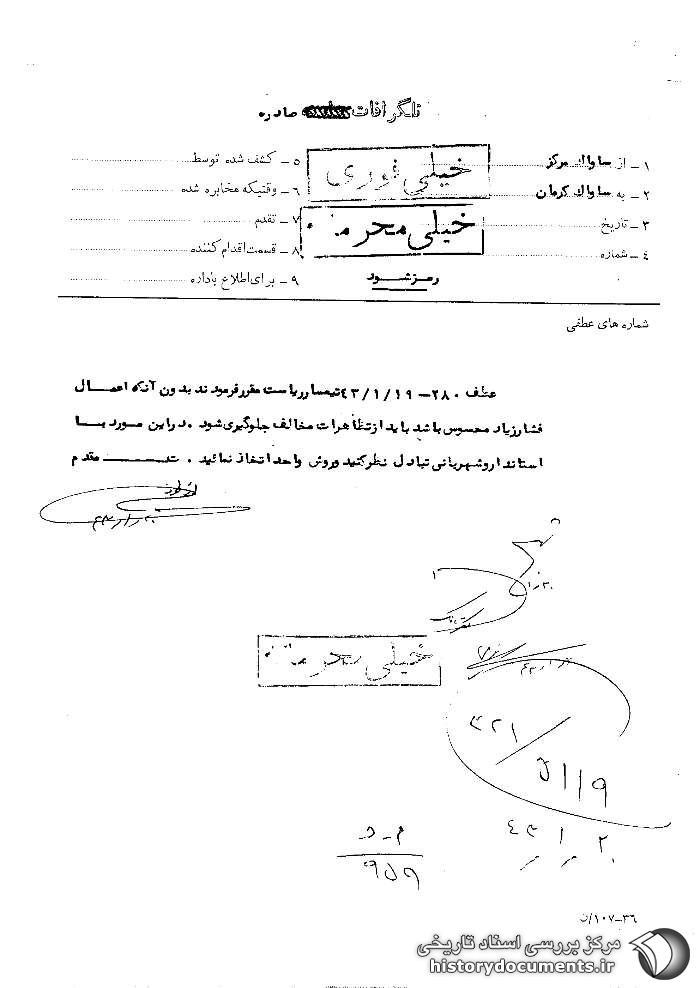 تلگرافات صادره
۱ـ از ساواك مركز
۲ـ به ساواك كرمان
۳ـ تاریخ
٤ـ شماره
خیلی فوری
خیلی محرمانه
رمز شود
۵ـ کشف شده توسط
۶ـ وقتیکه مخابره شده
۷ـ تقدم
۸ـ قسمت اقدام کننده
۹ـ برای اطلاع باداره
شماره های عطفی
عطف ۲۸۰ـ ۴۳/۱/۱۹ تیمسار ریاست مقرر فرمودند بدون آنکه اعمال
فشار زیاد محسوس باشد باید از تظاهرات مخالف جلوگیری شود . در این مورد با
استاندار و شهربانی تبادل نظر کنید و روش واحد اتخاذ نمائید . مقدم
خیلی محرمانه
۳۲۱
۵۱۱۹
٤۳ ۱ ۲۰
م ـ د
۹۵۹
۳۶ـ۱۰۷/ن
مرکز بررسی اسناد تاریخی
historydocuments.ir